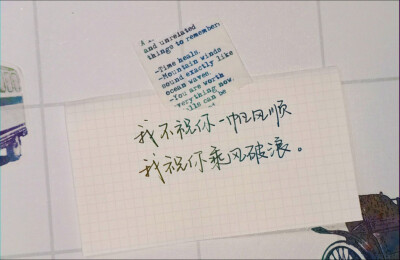 and unrelated
things to remember
-Time heals.
-Mountain winds
sound exactly like
ocean waves
-You are worth
everything now
can be
我不祝你一帆风顺
我祝你乘风破浪。